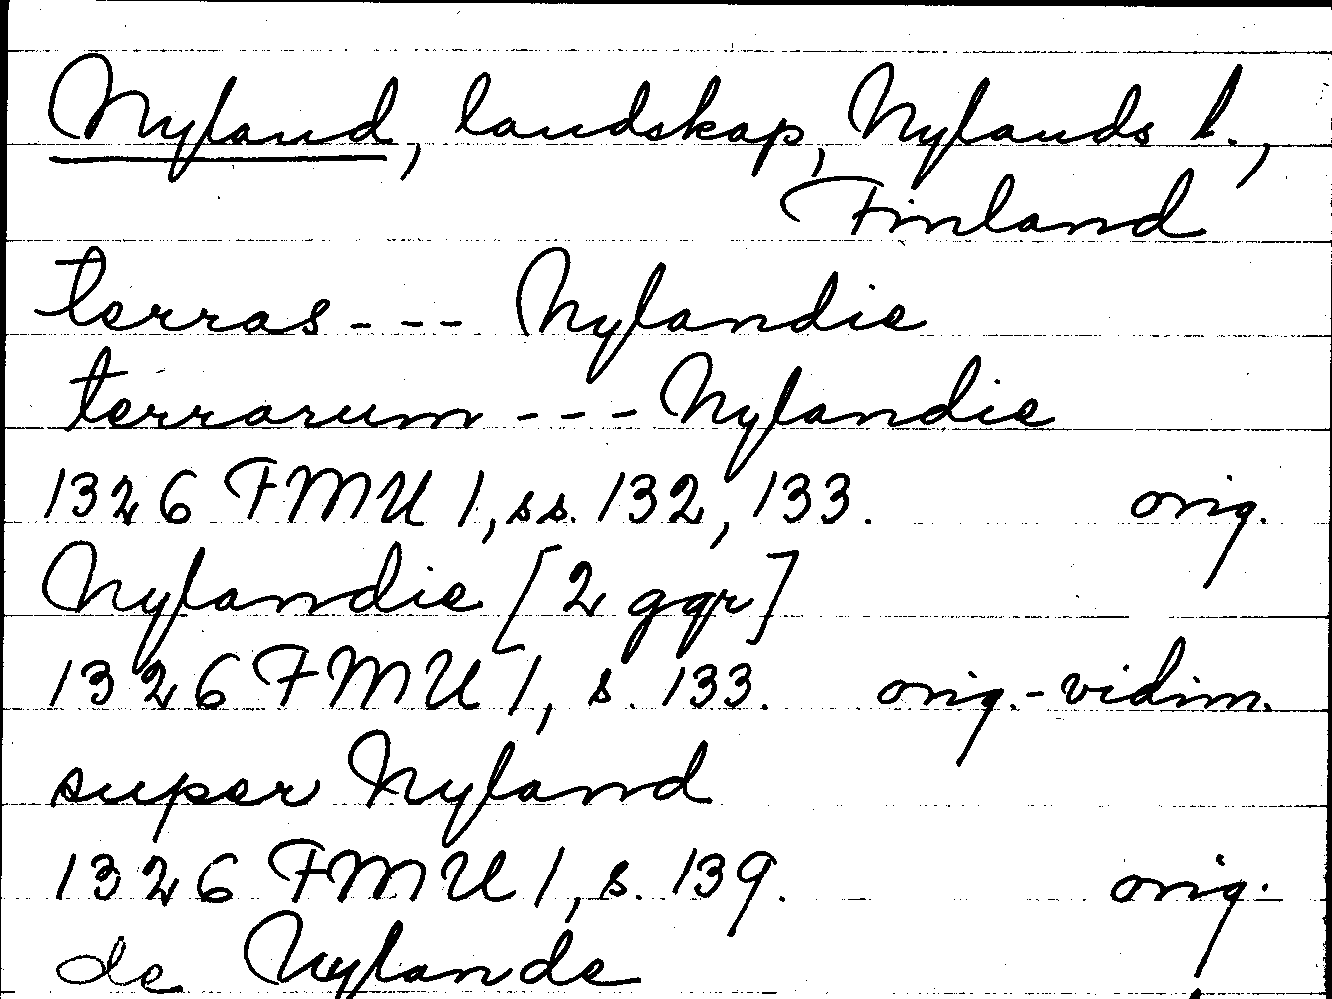 Nyland, landskap, Nylands l.,
Finland
terras --- Nylandie
terrarum --- Nylandie
1326 FMU 1, ss. 132, 133. orig.
Nylandie [2 ggr]
1326 FMU 1, s. 133. orig.-vidim.
super Nyland
1326 FMU 1, s. 139. orig.
de Nylande